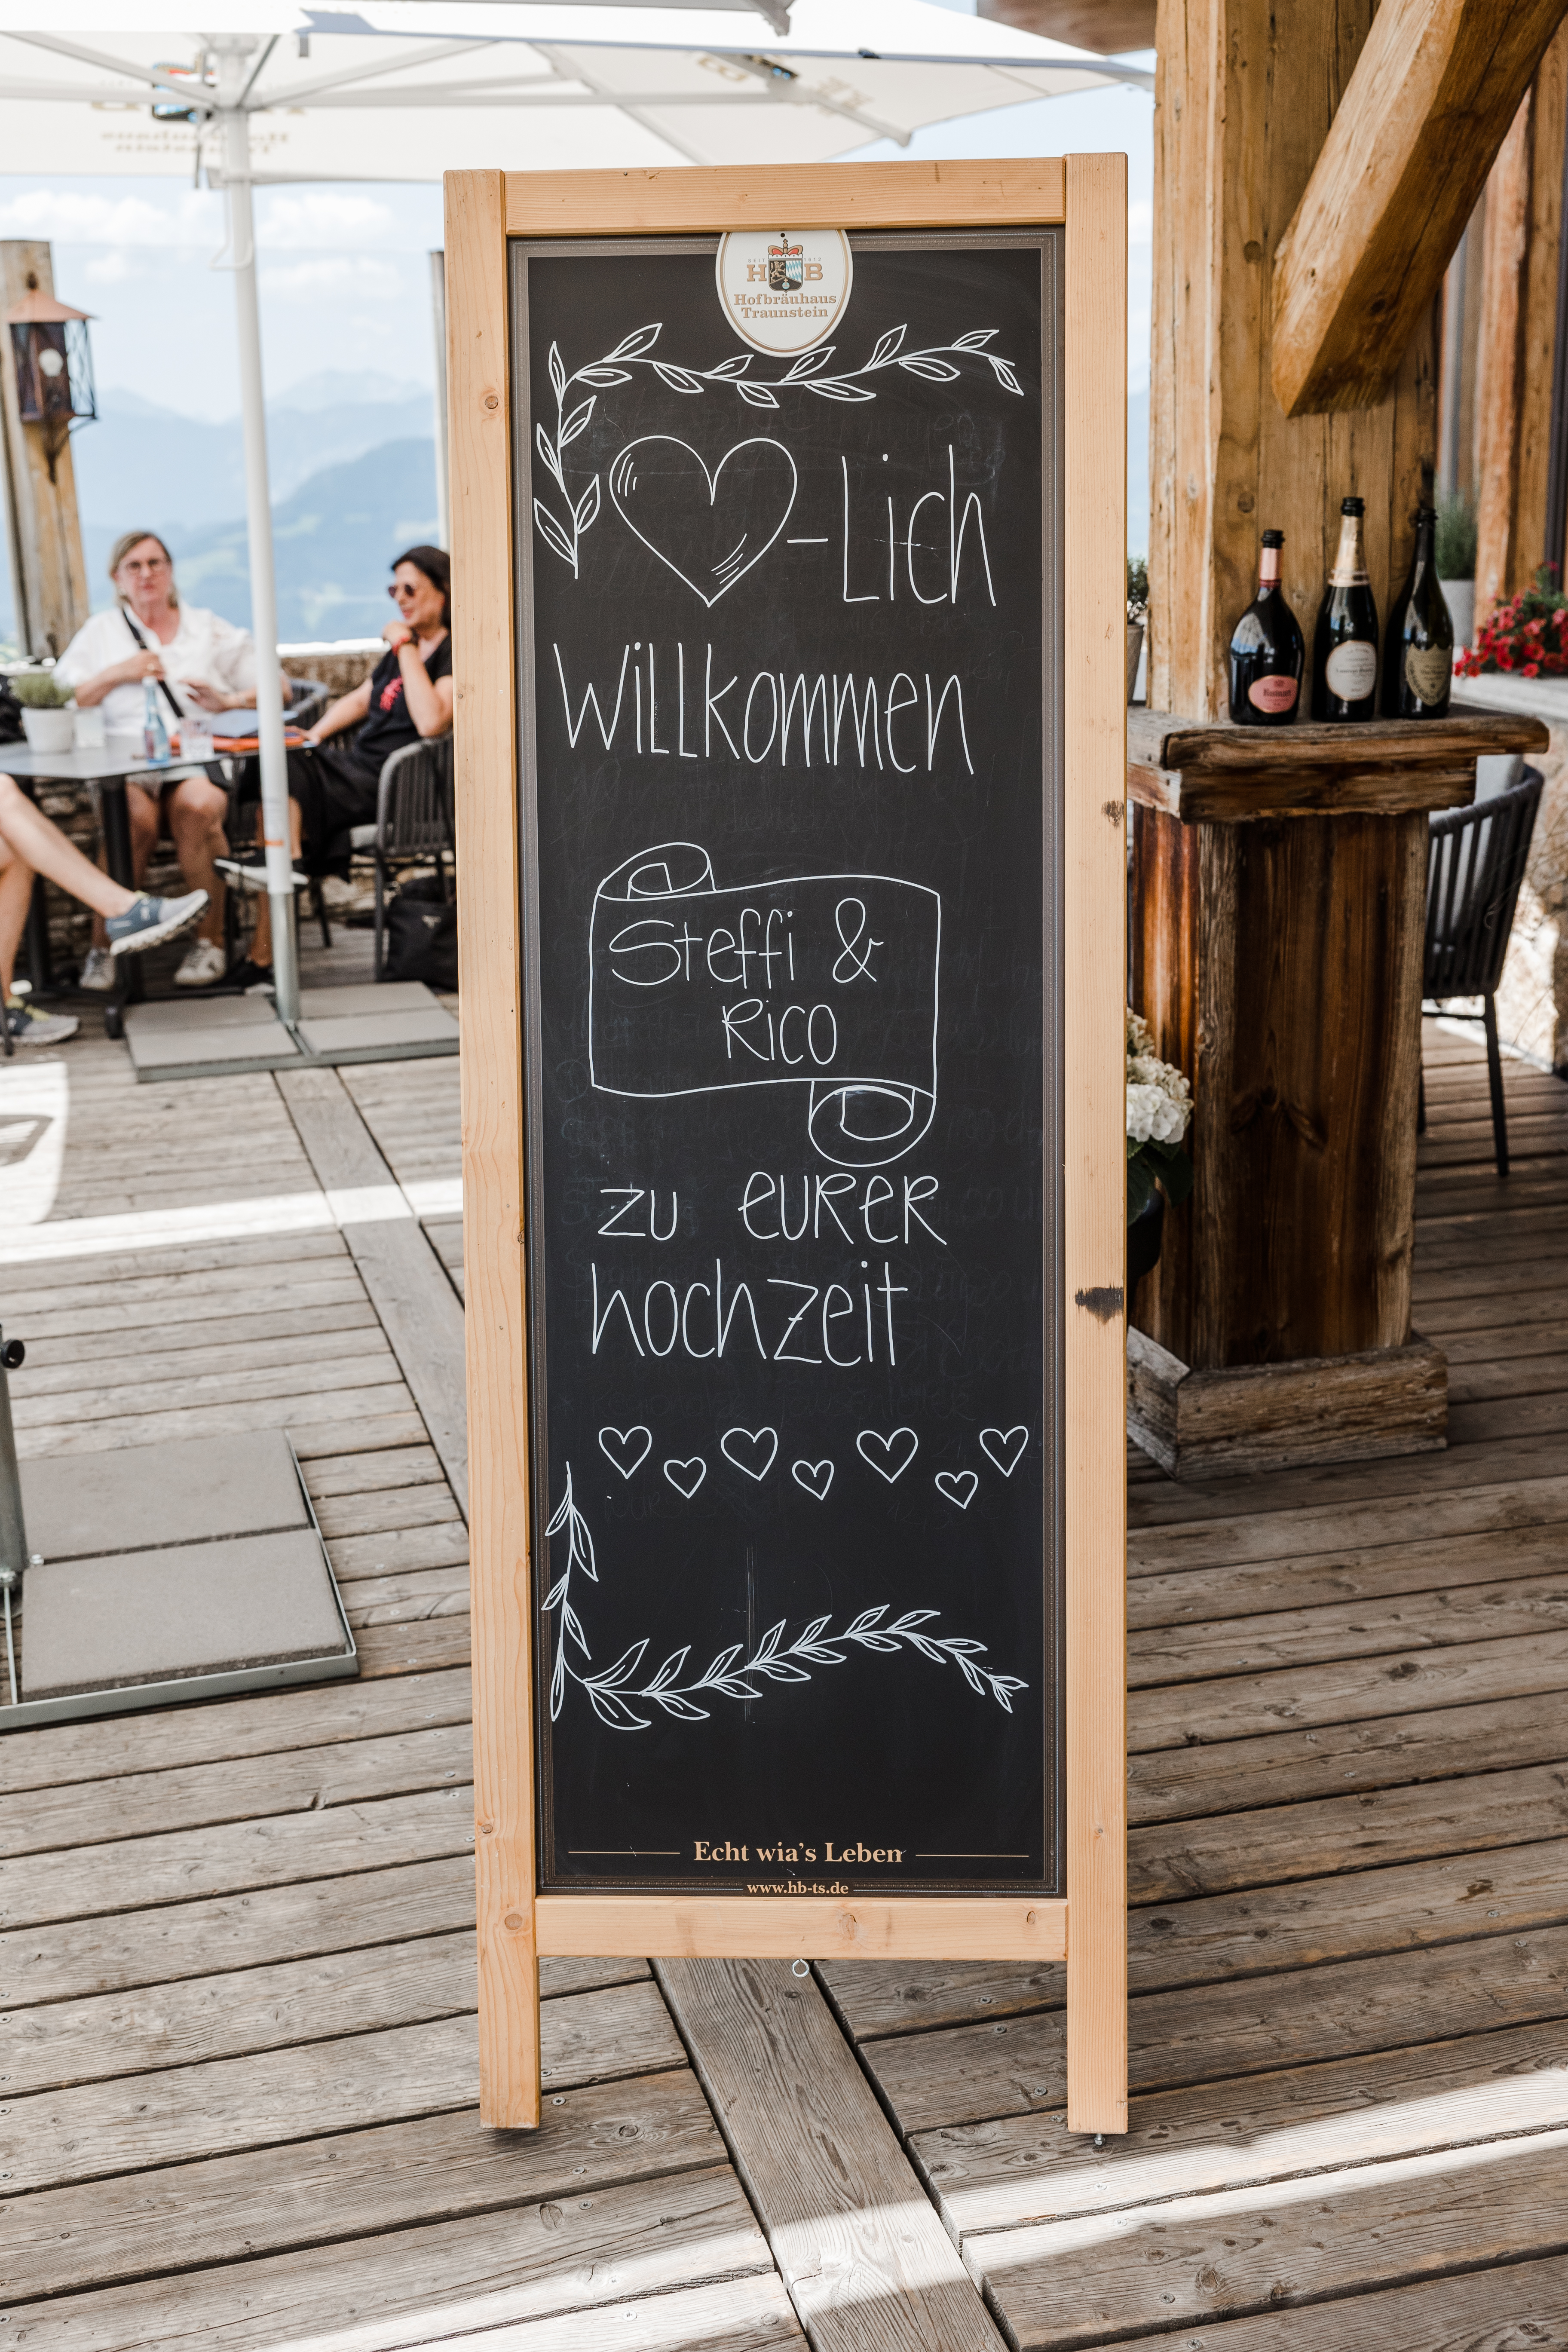 H B
Hofbräuhaus
Traunstein
♥-Lich
Willkommen
Steffi &
Rico
zu eurer
hochzeit
Echt wia's Leben
www.hb-ts.de
Ruinart